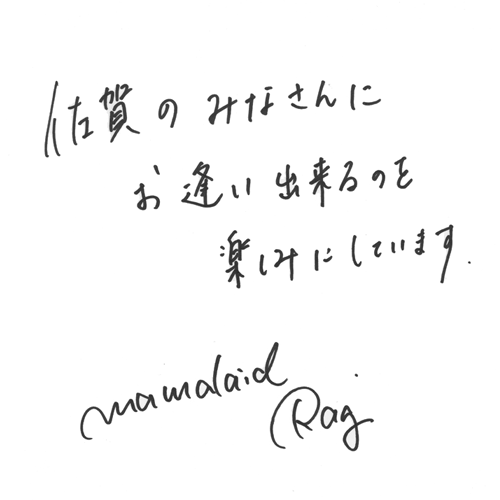 佐賀のみなさんに
お逢い出来るのを
楽しみにしています.
mamalaid
Rag